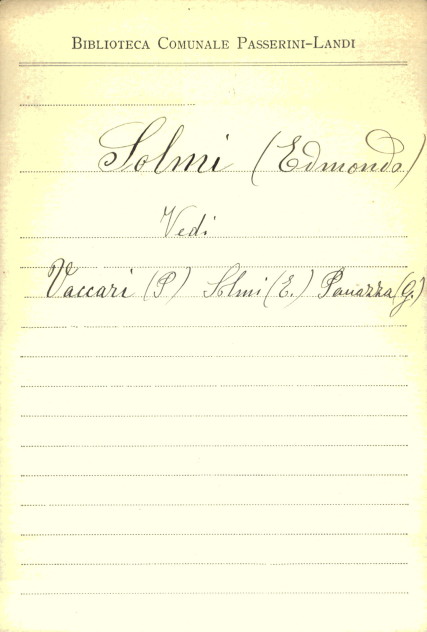 BIBLIOTECA COMUNALE PASSERINI-LANDI
Solmi (Edmondo)
Vedi
Vaccari (P) Solmi (E.) Panazza (G.)